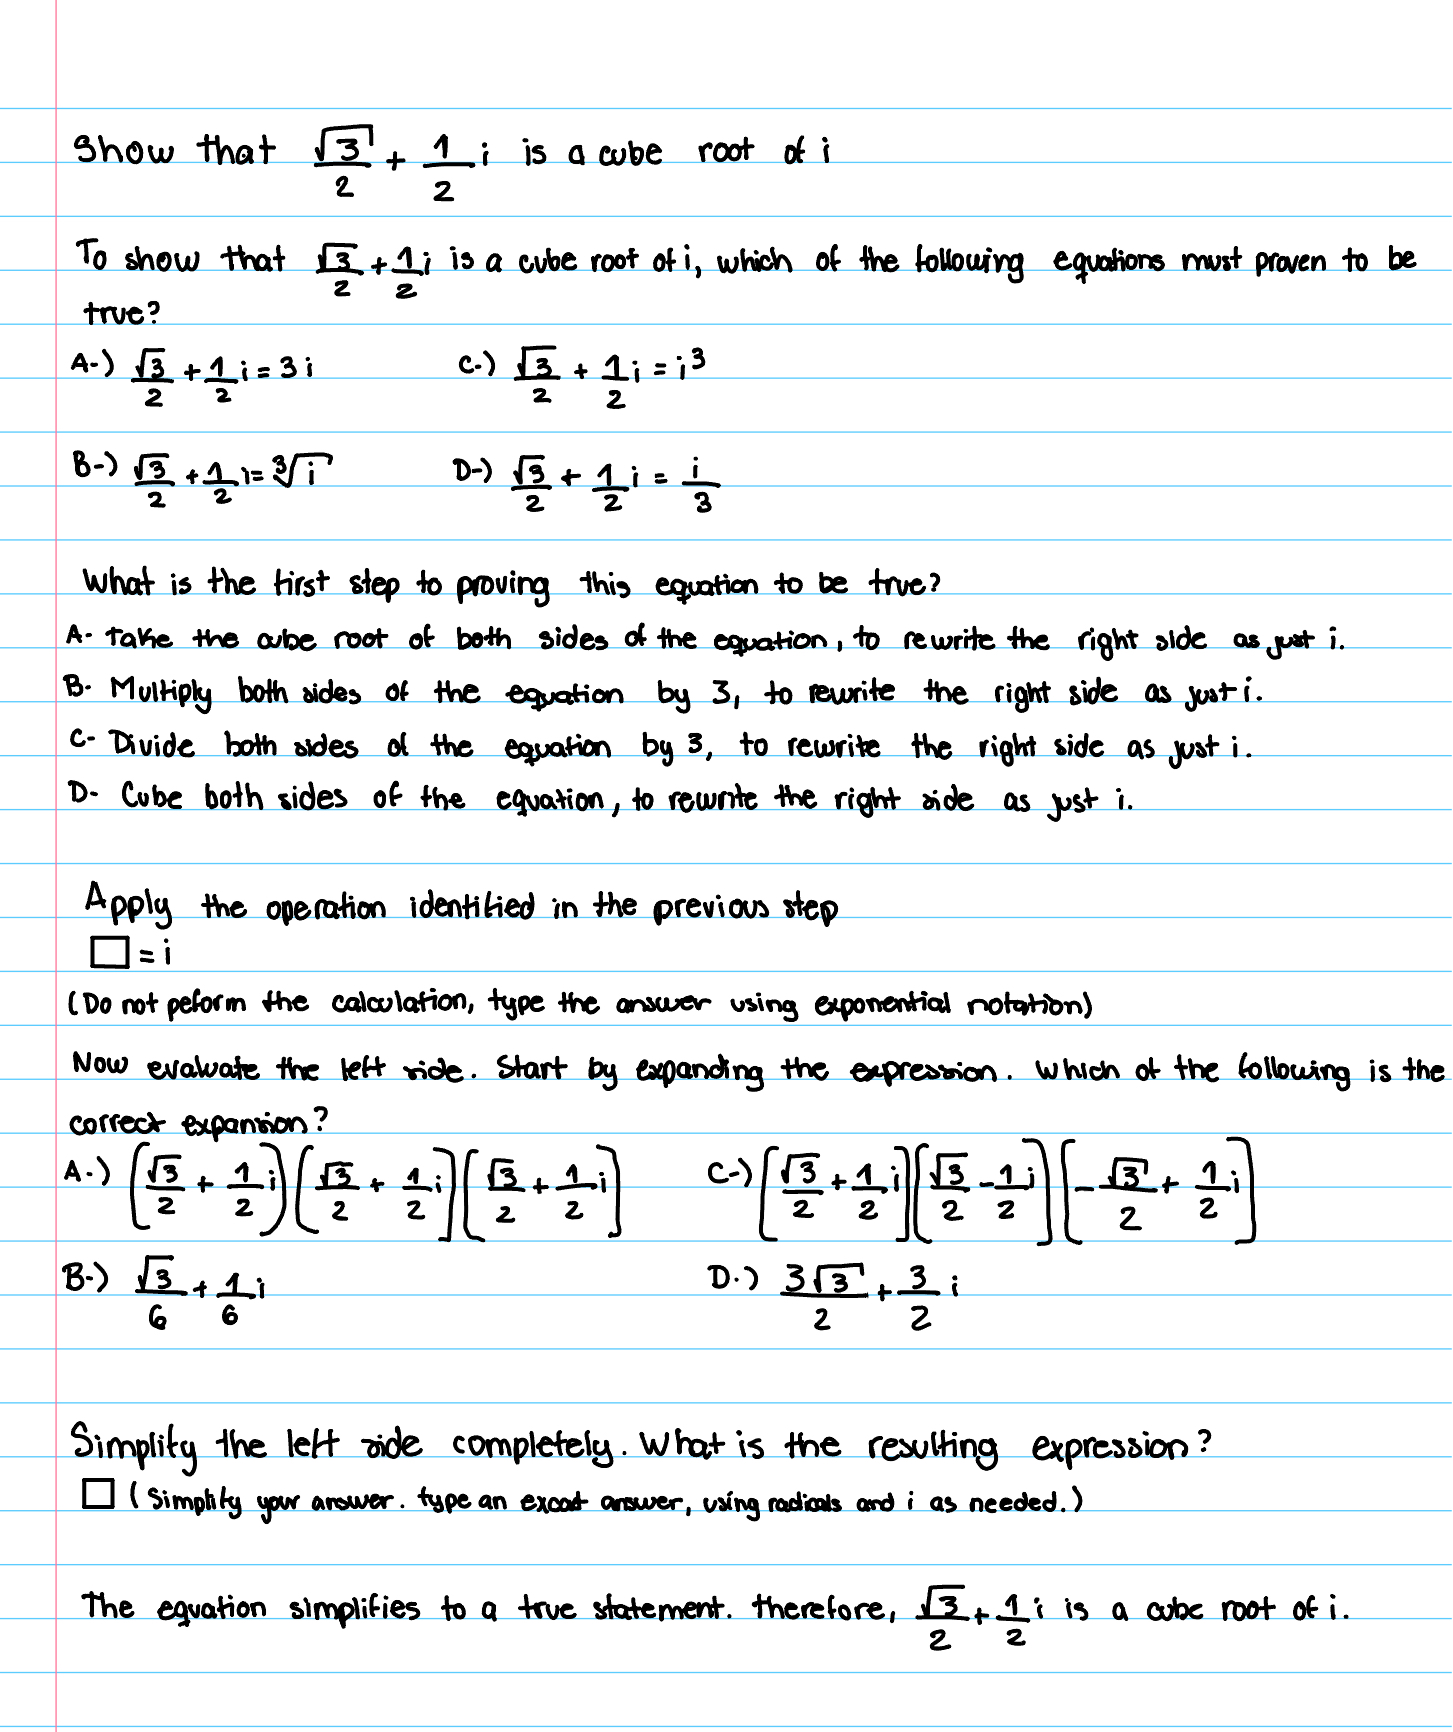 Show that √3/2 + 1/2 i is a cube root of i
To show that √3/2 + 1/2 i is a cube root of i, which of the following equations must proven to be
true?
A-) √3/2 + 1/2 i = 3i C-) √3/2 + 1/2 i = i³
B-) √3/2 + 1/2 i = ³√i D-) √3/2 + 1/2 i = i/3
What is the first step to proving this equation to be true?
A- take the cube root of both sides of the equation, to rewrite the right side as just i.
B- Multiply both sides of the equation by 3, to rewrite the right side as just i.
C- Divide both sides of the equation by 3, to rewrite the right side as just i.
D- Cube both sides of the equation, to rewrite the right side as just i.
Apply the operation identified in the previous step
□ = i
(Do not peform the calculation, type the answer using exponential notation)
Now evaluate the left side. Start by expanding the expression. Which of the following is the
correct expansion?
A-) (√3/2 + 1/2 i)(√3/2 + 1/2 i](√3/2 + 1/2 i] C-) [√3/2 + 1/2 i][√3/2 - 1/2 i][-√3/2 + 1/2 i]
B-) √3/6 + 1/6 i D-) 3√3/2 + 3/2 i
Simplify the left side completely. What is the resulting expression?
□ (Simplify your answer. type an exact answer, using radicals and i as needed.)
The equation simplifies to a true statement. therefore, √3/2 + 1/2 i is a cube root of i.